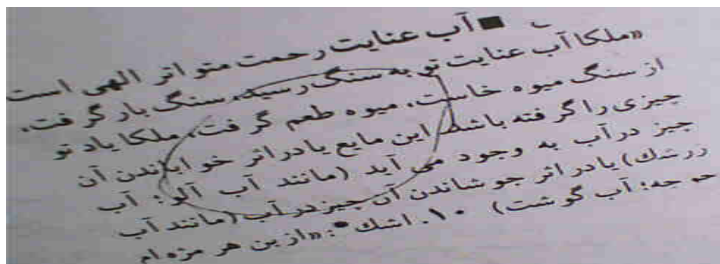 ■ آب عنایت رحمت متواتر الهی است
«ملکا آب عنایت تو به سنگ رسید، سنگ بار گرفت،
از سنگ میوه خاست، میوه طعم گرفت، ملکا یاد تو
چیزی را گرفته باشد. این مایع یا در اثر خواباندن آن
چیز در آب به وجود می آید (مانند آب آلو؛ آب
زرشك) یا در اثر جوشاندن آن چیز در آب (مانند آب
جوجه؛ آب گوشت) ۱۰. اشك•: «ازین هر مژه ام